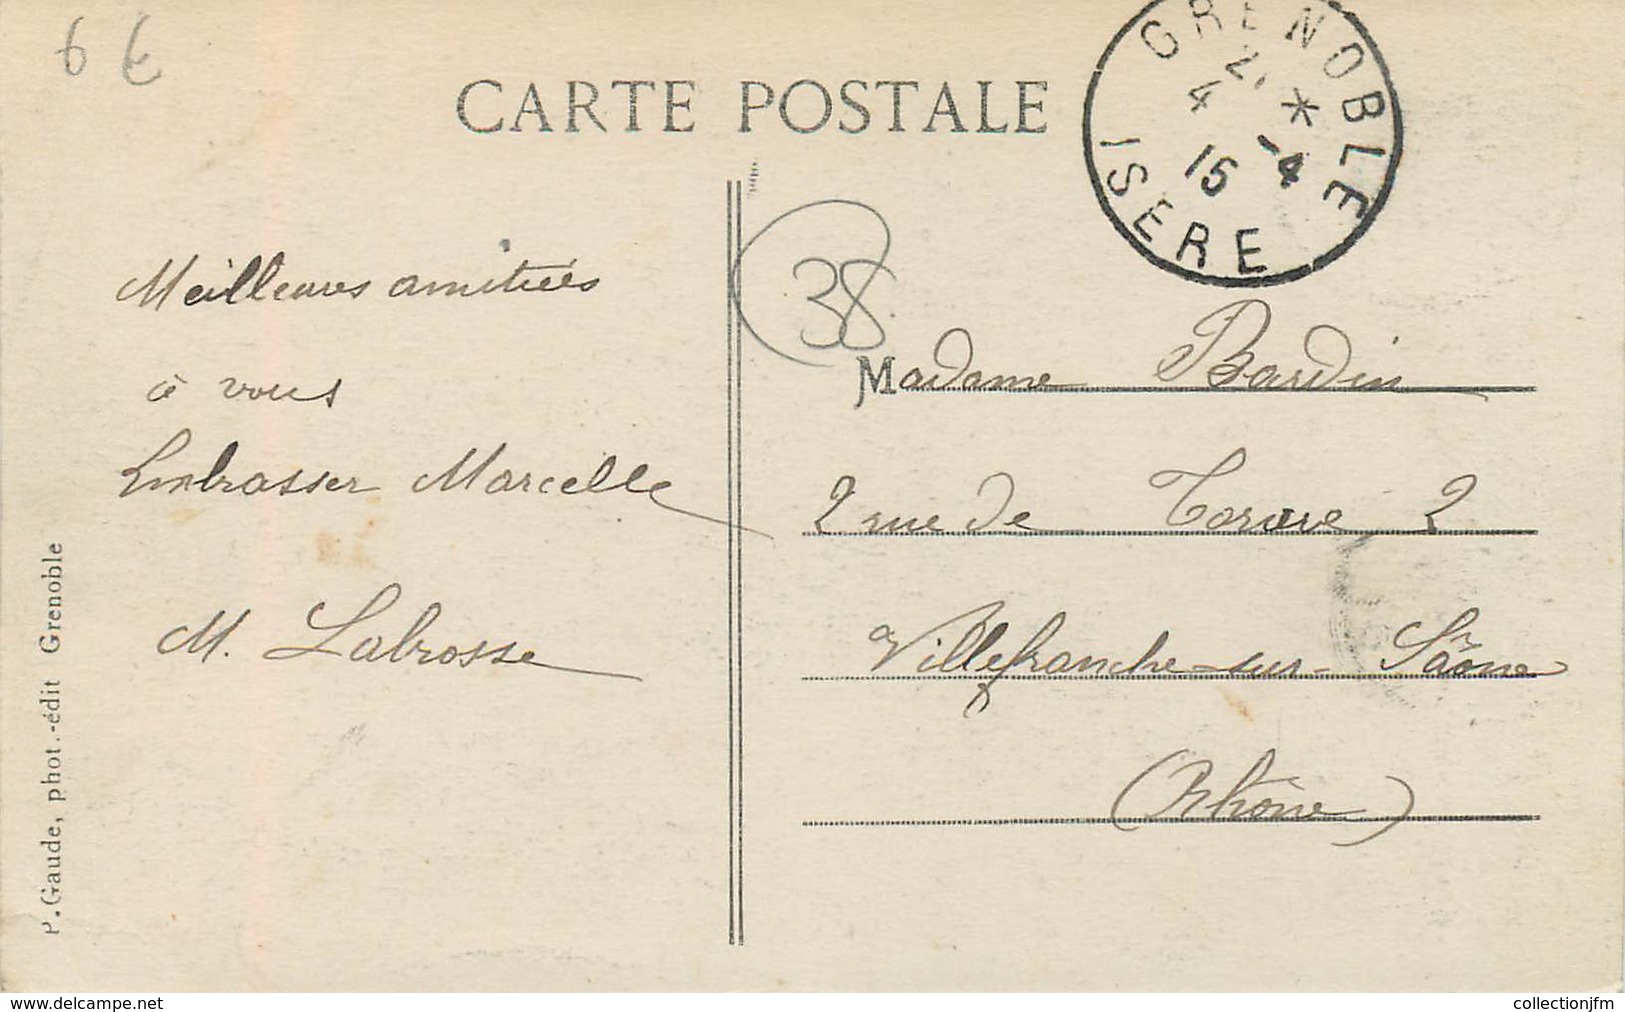 6 €
CARTE POSTALE
GRENOBLE
2' *
4 -4
15
ISERE
38
Meilleures amitiés
à vous
Embrasser Marcelle
M. Labrosse
Madame Bardin
2 rue de Tarare 2
Villefranche-sur-Saône
(Rhône)
P. Gaude, phot.-édit Grenoble
www.delcampe.net
collectionjfm